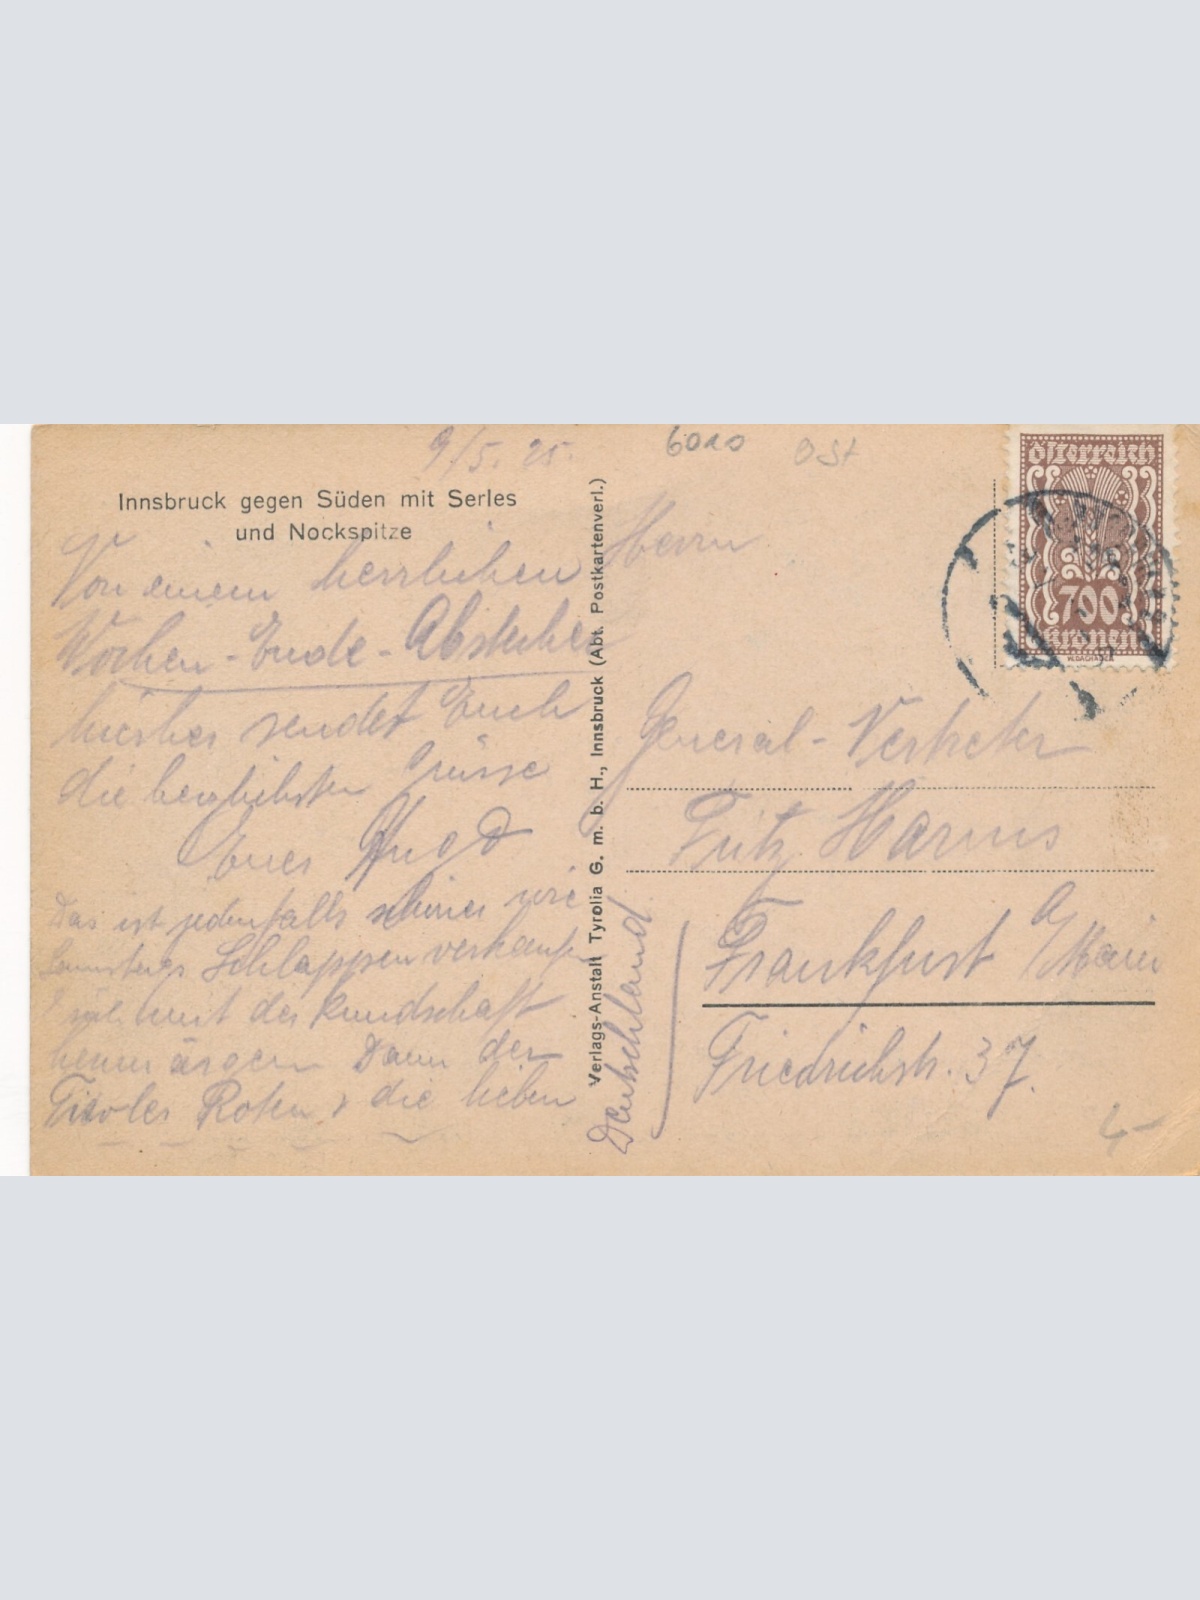 9/5. 25.
6020
OSt
Innsbruck gegen Süden mit Serles
und Nockspitze
Von einem herrlichen
Wochen-Ende-Abstecher
hierher sendet Euch
die herzlichsten Grüsse
Euer Hugo
Das ist jedenfalls schöner wie
Schlappen verkaufen
mit der Kundschaft
Dann der
Tiroler Roten, die lieben
Verlags-Anstalt Tyrolia G. m. b. H., Innsbruck (Abt. Postkartenverl.)
Österreich
700
Kronen
Herrn
General-Vertreter
Fritz Harms
Frankfurt a/Main
Friedrichstr. 37.
Deutschland